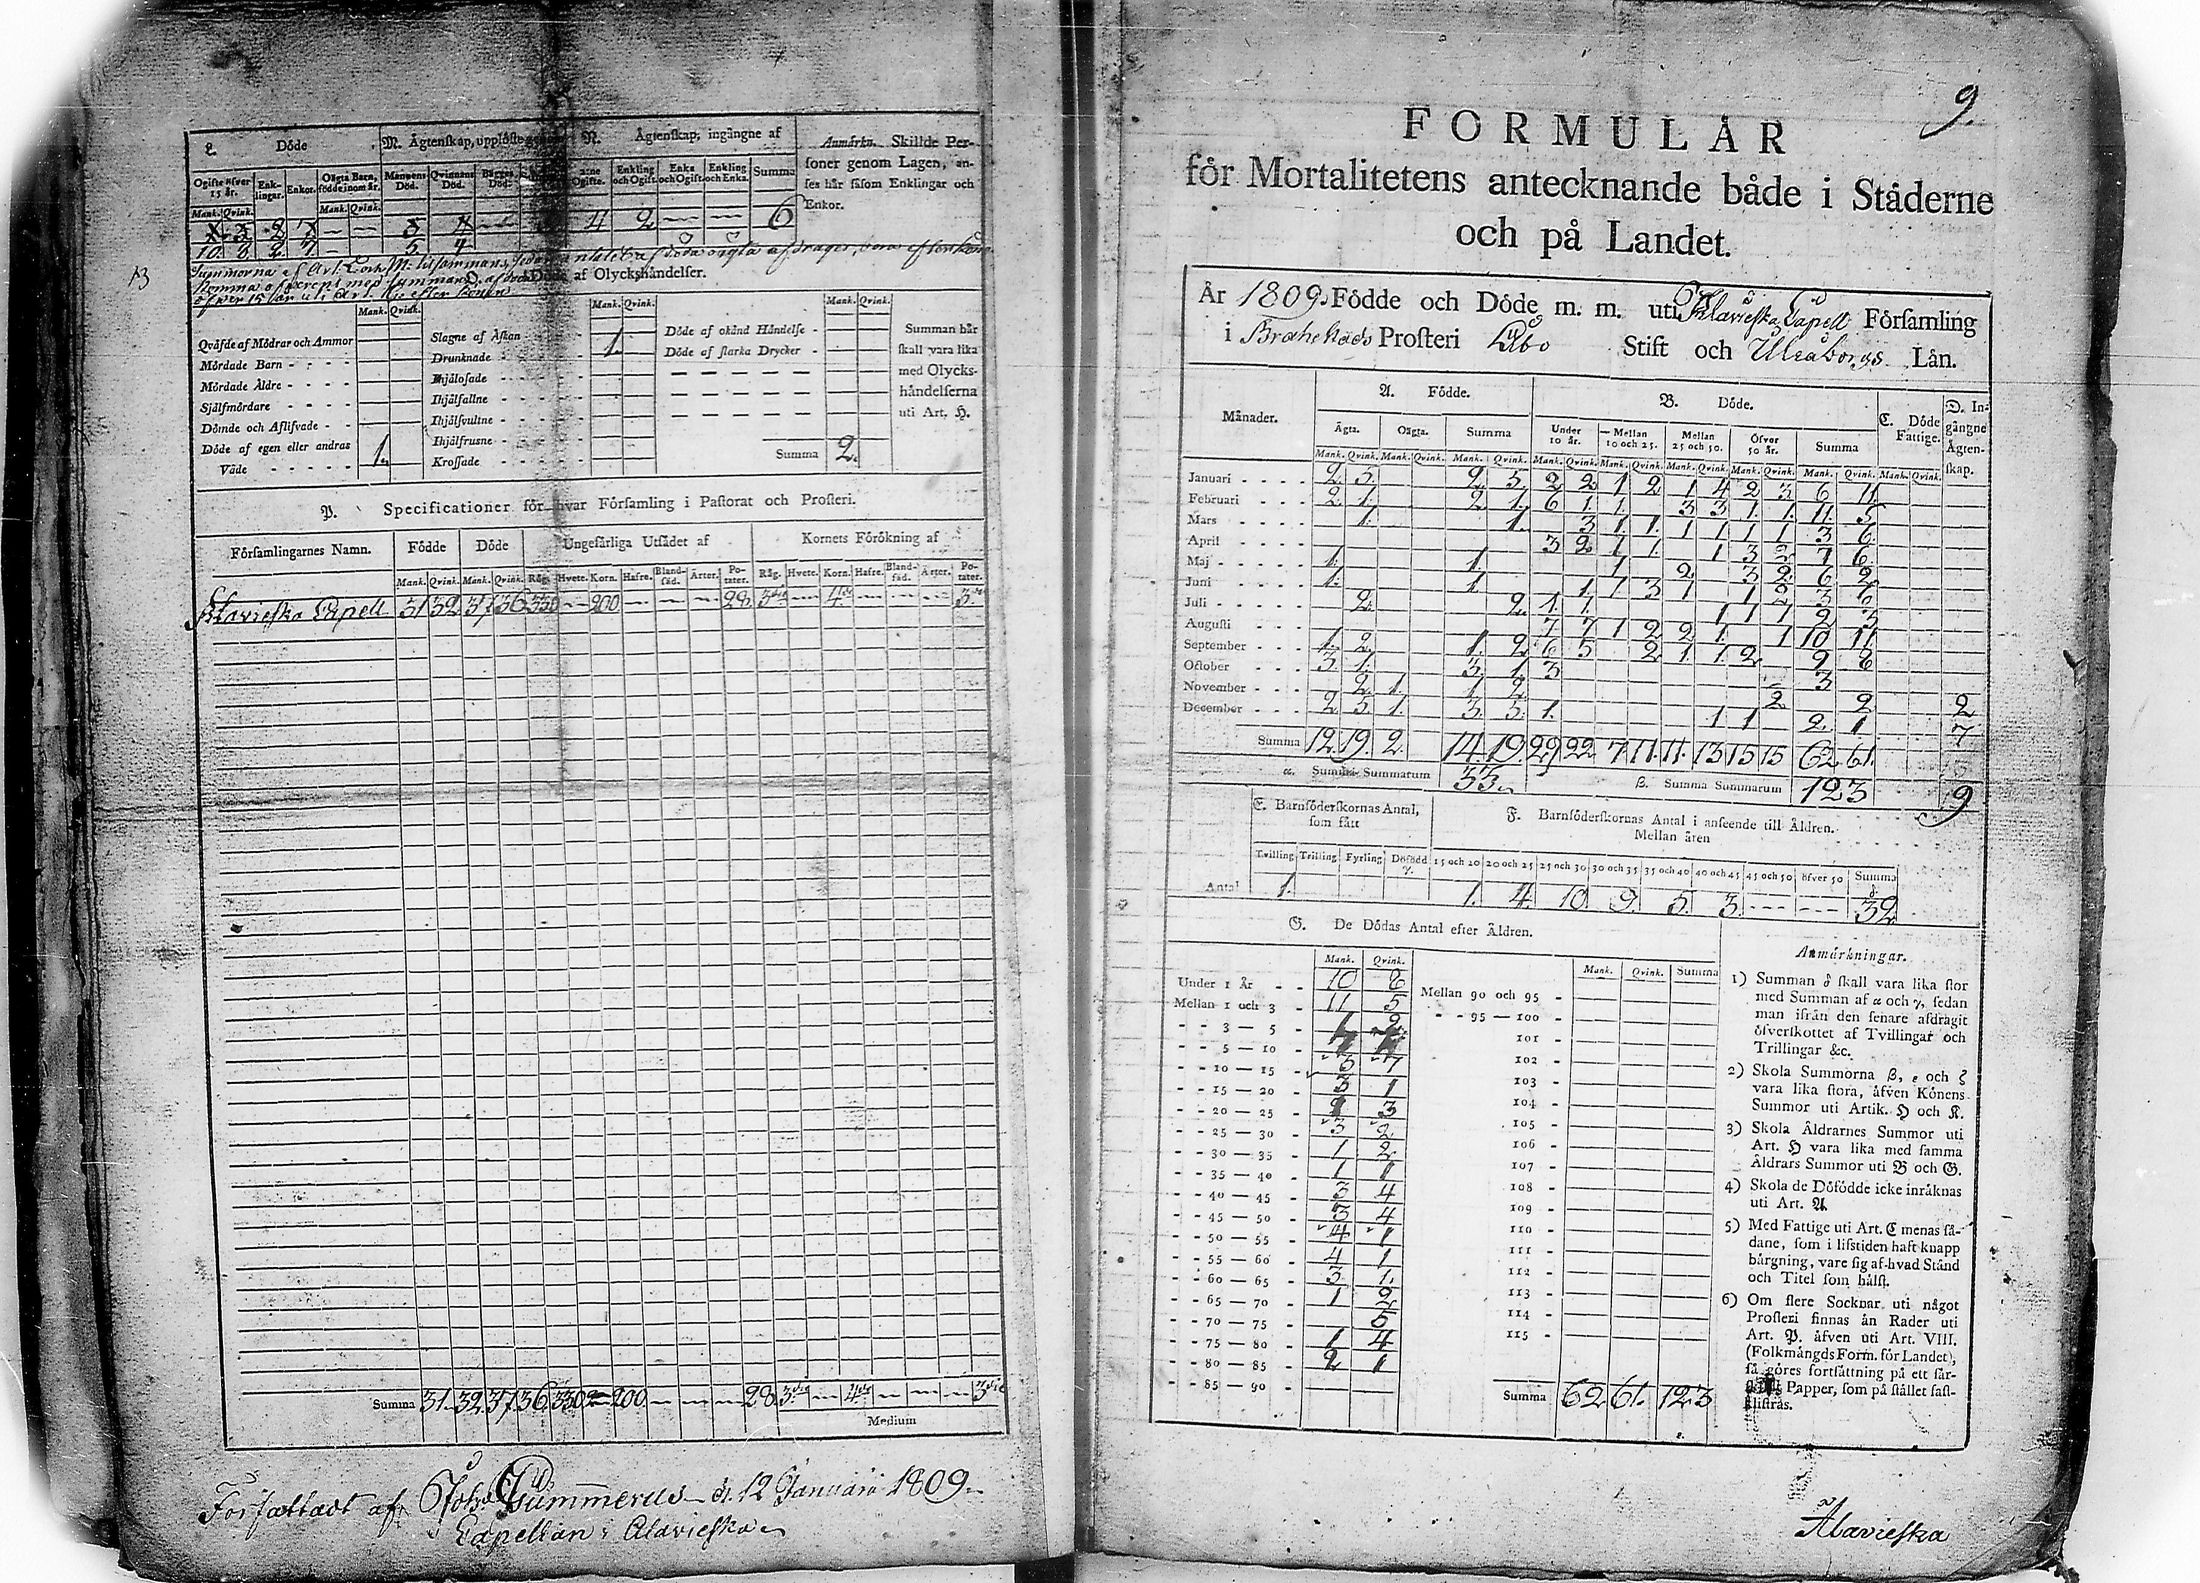 L. Döde
M. Ägtenskap, upplöste genom
N. Ägtenskap, ingångne af
Anmärkn. Skillde Per-
soner genom Lagen, an-
ses här såsom Enklingar och
Enkor.
Ogifte öfver 15 år. Enk-lingar. Enkor. Oägta Barn, födde inom år. Mannens Död. Qvinnans Död. Bägges Död. Ogifte. Enkling och Ogift. Enka och Ogift. Enkling och Enka. Summa
Mank. Qvink. Mank. Qvink.
4 2 — — 6
10. 8. 2. 7. — 5. 4.
13
Döde af Olyckshändelser.
Mank. Qvink. Mank. Qvink. Mank. Qvink.
Qväfde af Mödrar och Ammor
Mördade Barn - - - -
Mördade Äldre - - - -
Självmördare - - - -
Dömde och Aflifvade - -
Döde af egen eller andras
Våde - - - - - 1.
Slagne af Åskan - - - 1.
Drunknade - - - -
Ihjälosade - - - -
Ihjälfallne - - - -
Ihjälsvultne - - - -
Ihjälfrusne - - - -
Krossade - - - -
Döde af okänd Händelse -
Döde af starka Drycker -
Summa 2.
Summan här
skall vara lika
med Olycks-
händelserna
uti Art. H.
P. Specificationer för hvar Församling i Pastorat och Prosteri.
Församlingarnes Namn. Födde Döde Ungefärliga Utsädet af Kornets Förökning af
Mank. Qvink. Mank. Qvink. Råg. Hvete. Korn. Hafre. Bland-säd. Ärter. Po-tater. Råg. Hvete. Korn. Hafre. Bland-säd. Ärter. Po-tater.
Alavieska Capell 31 32 37 36 330 — 200 — — — 28 3die — 4de — — — 3die
Summa 31. 32. 37. 36. 330 — 200 — — — 28. 3die — 4de — — — 3die
Medium
Författadt af Joh. Gummerus d. 12 Januarii 1809.
Capellan i Alavieska
9.
FORMULÄR
för Mortalitetens antecknande både i Städerne
och på Landet.
År 1809. Födde och Döde m. m. uti Alavieska Capell Församling
i Brahestads Prosteri Åbo Stift och Uleåborgs Län.
Månader. A. Födde. B. Döde. C. Döde Fattige. D. In-gångne Ägten-skap.
Ägta. Oägta. Summa Under 10 år. Mellan 10 och 25. Mellan 25 och 50. Öfver 50 år. Summa
Mank. Qvink. Mank. Qvink. Mank. Qvink. Mank. Qvink. Mank. Qvink. Mank. Qvink. Mank. Qvink. Mank. Qvink. Mank. Qvink.
Januari - - - - 2. 5. 2. 5. 2 2 1 2 1 4 2 3 6 11
Februari - - - - 2 1. 2 1. 6 1. 1. 3 3 1. 1. 11. 5
Mars - - - - 1. 1. 3 1 1. 1 1 1 1 3 6
April - - - - 3 2 1 1. 1 3 2 7 6
Maj - - - - 1. 1. 1 2 3 2 6 2
Juni - - - - 1. 1.
Juli - - - - 2. 2.
Augusti - - - - 7 7 1 2 2 1. 1 10 11
September - - - 1. 2. 1. 2 6 5 2 1. 1. 2 9 8
Oktober - - - 3. 1. 3. 1 3 3
November - - - 2 1. 1 2 2 2 2
December - - - 2 5. 1. 3. 5. 1. 1 1 2. 1 7
Summa 12. 19. 2. 14. 19. 29 22 7 11. 11. 13 15 15 62 61.
α. Summa Summarum 33. β. Summa Summarum 123 9
E. Barnsöderskornas Antal,
som fått
F. Barnsöderskornas Antal i anseende till Åldren.
Mellan åren
Tvilling Trilling Fyrling Dödfödd γ. 15 och 20 20 och 25 25 och 30 30 och 35 35 och 40 40 och 45 45 och 50 öfver 50 Summa δ.
Antal 1. 1. 4. 10. 9. 5. 3. --- --- 32
G. De Dödas Antal efter Åldren.
Mank. Qvink. Mank. Qvink. Summa
Under 1 År - - 10 8
Mellan 1 och 3 - 11 5
- - 3 — 5 -
- - 5 — 10 -
- - 10 — 15 -
- - 15 — 20 - 3 1
- - 20 — 25 - 3
- - 25 — 30 - 3 2
- - 30 — 35 - 1 2
- - 35 — 40 - 1 1
- - 40 — 45 - 3 4
- - 45 — 50 - 3 4
- - 50 — 55 - 4 1
- - 55 — 60 - 4 1
- - 60 — 65 - 3 1.
- - 65 — 70 - 1 2
- - 70 — 75 - 5
- - 75 — 80 - 1 4
- - 80 — 85 - 2 1
- - 85 — 90 -
Mellan 90 och 95 -
- - 95 — 100 -
101 -
102 -
103 -
104 -
105 -
106 -
107 -
108 -
109 -
110 -
111 -
112 -
113 -
114 -
115 -
Summa 62 61. 123
Anmärkningar.
1) Summan δ skall vara lika stor
med Summan af α och γ, sedan
man ifrån den senare afdragit
öfverskottet af Tvillingar och
Trillingar &c.
2) Skola Summorna β, ε och ζ
vara lika stora, äfven Könens
Summor uti Artik. H och K.
3) Skola Åldrarnes Summor uti
Art. H vara lika med samma
Åldrars Summor uti B och G.
4) Skola de Döfödde icke inräknas
uti Art. A
5) Med Fattige uti Art. C menas så-
dane, som i lifstiden haft knapp
bärgning, vare sig af hvad Stånd
och Titel som hälst.
6) Om flere Socknar uti något
Prosteri finnas än Rader uti
Art. P. äfven uti Art. VIII.
(Folkmängds Form. för Landet),
så göres fortsättning på ett sär-
skilt Papper, som på stället fast-
klistras.
Alavieska